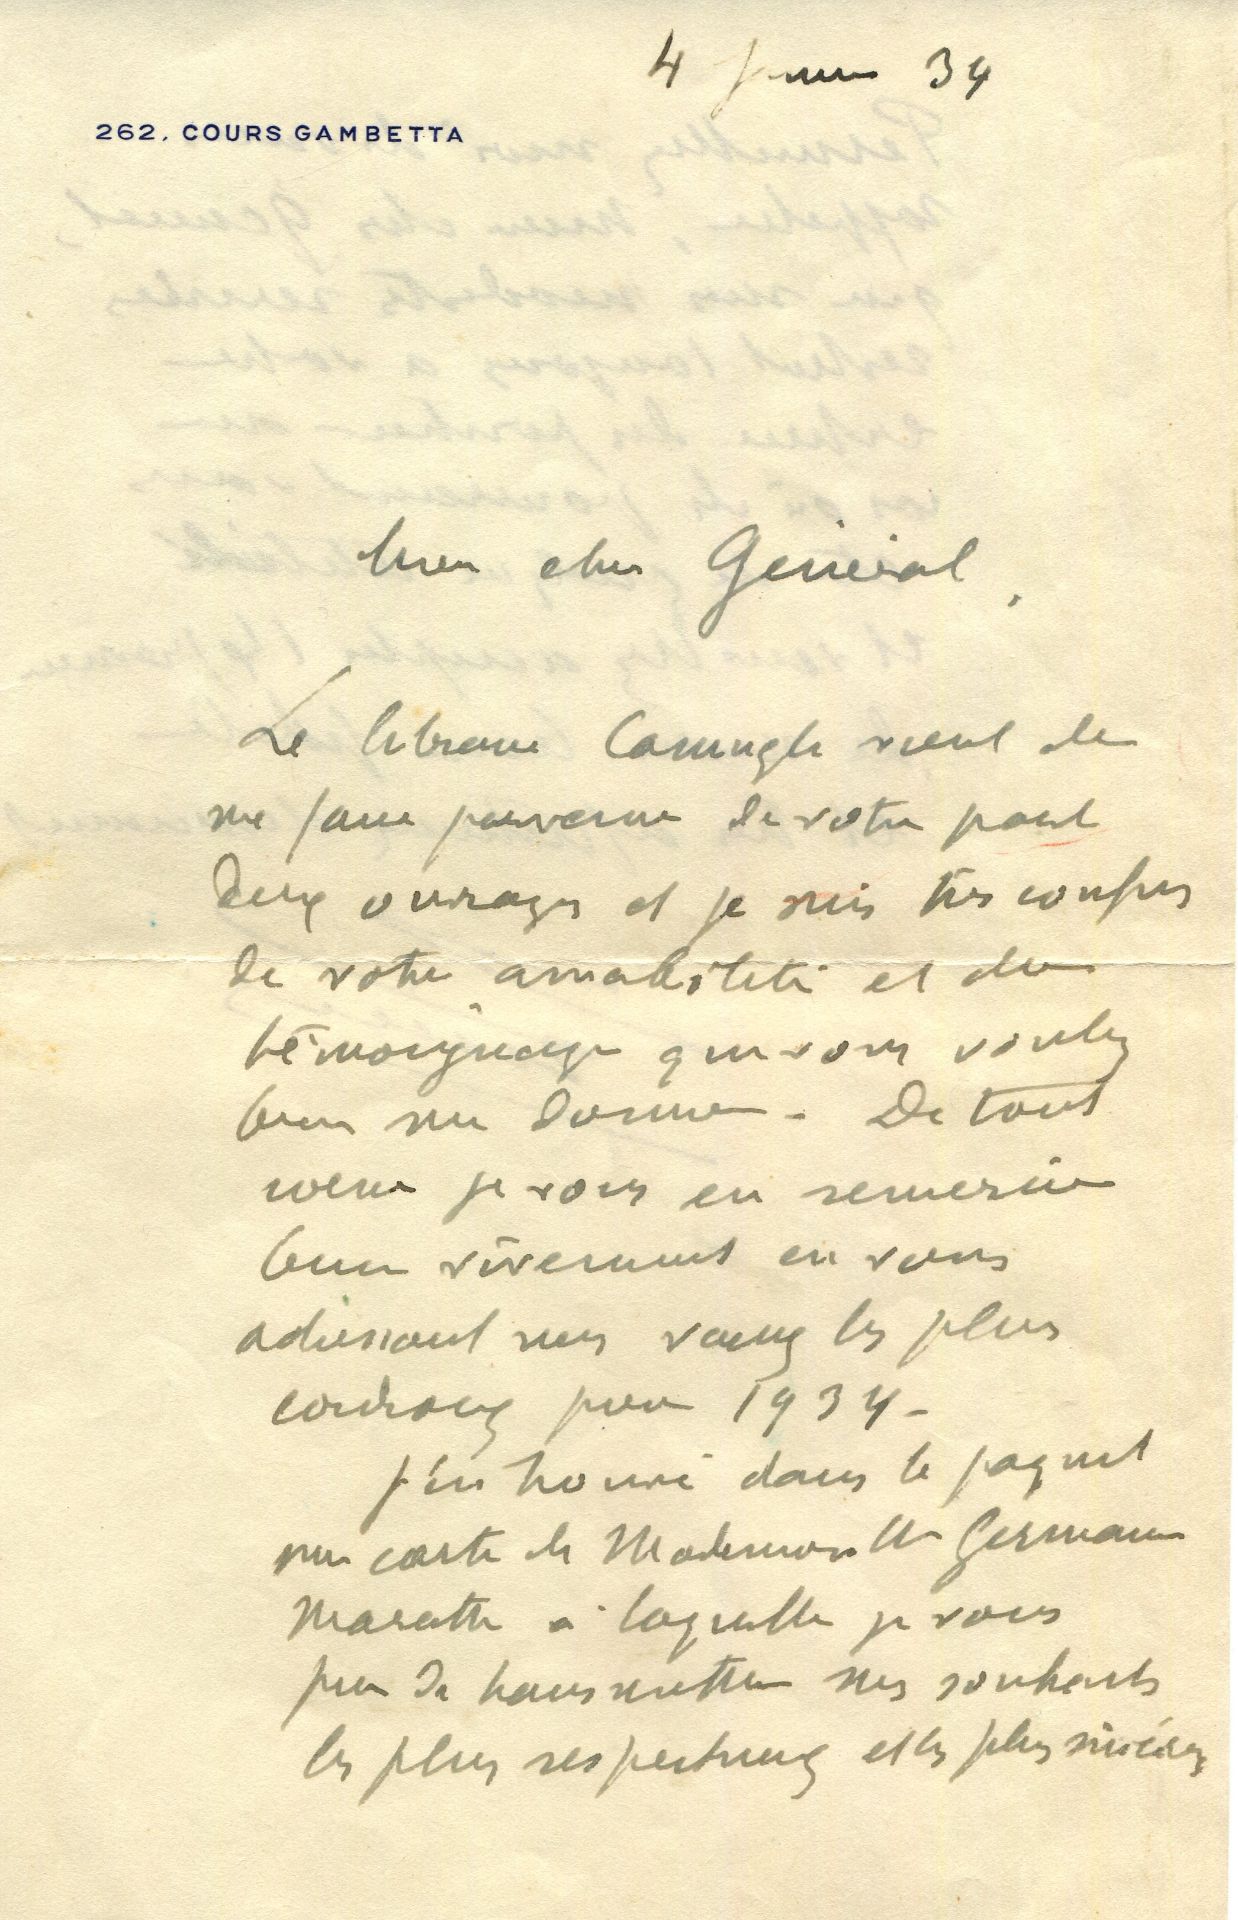 4 janvier 34
262, COURS GAMBETTA
Mon cher Général,
Le libraire vient de
me faire parvenir de votre part
deux ouvrages et je suis très confus
de votre amabilité et du
témoignage que vous voulez
bien me donner - De tout
coeur je vous en remercie
bien vivement en vous
adressant mes voeux les plus
cordiaux pour 1934 -
J'ai trouvé dans le paquet
une carte de Mademoiselle Germaine
à laquelle je vous
prie de transmettre mes souhaits
les plus respectueux et les plus sincères